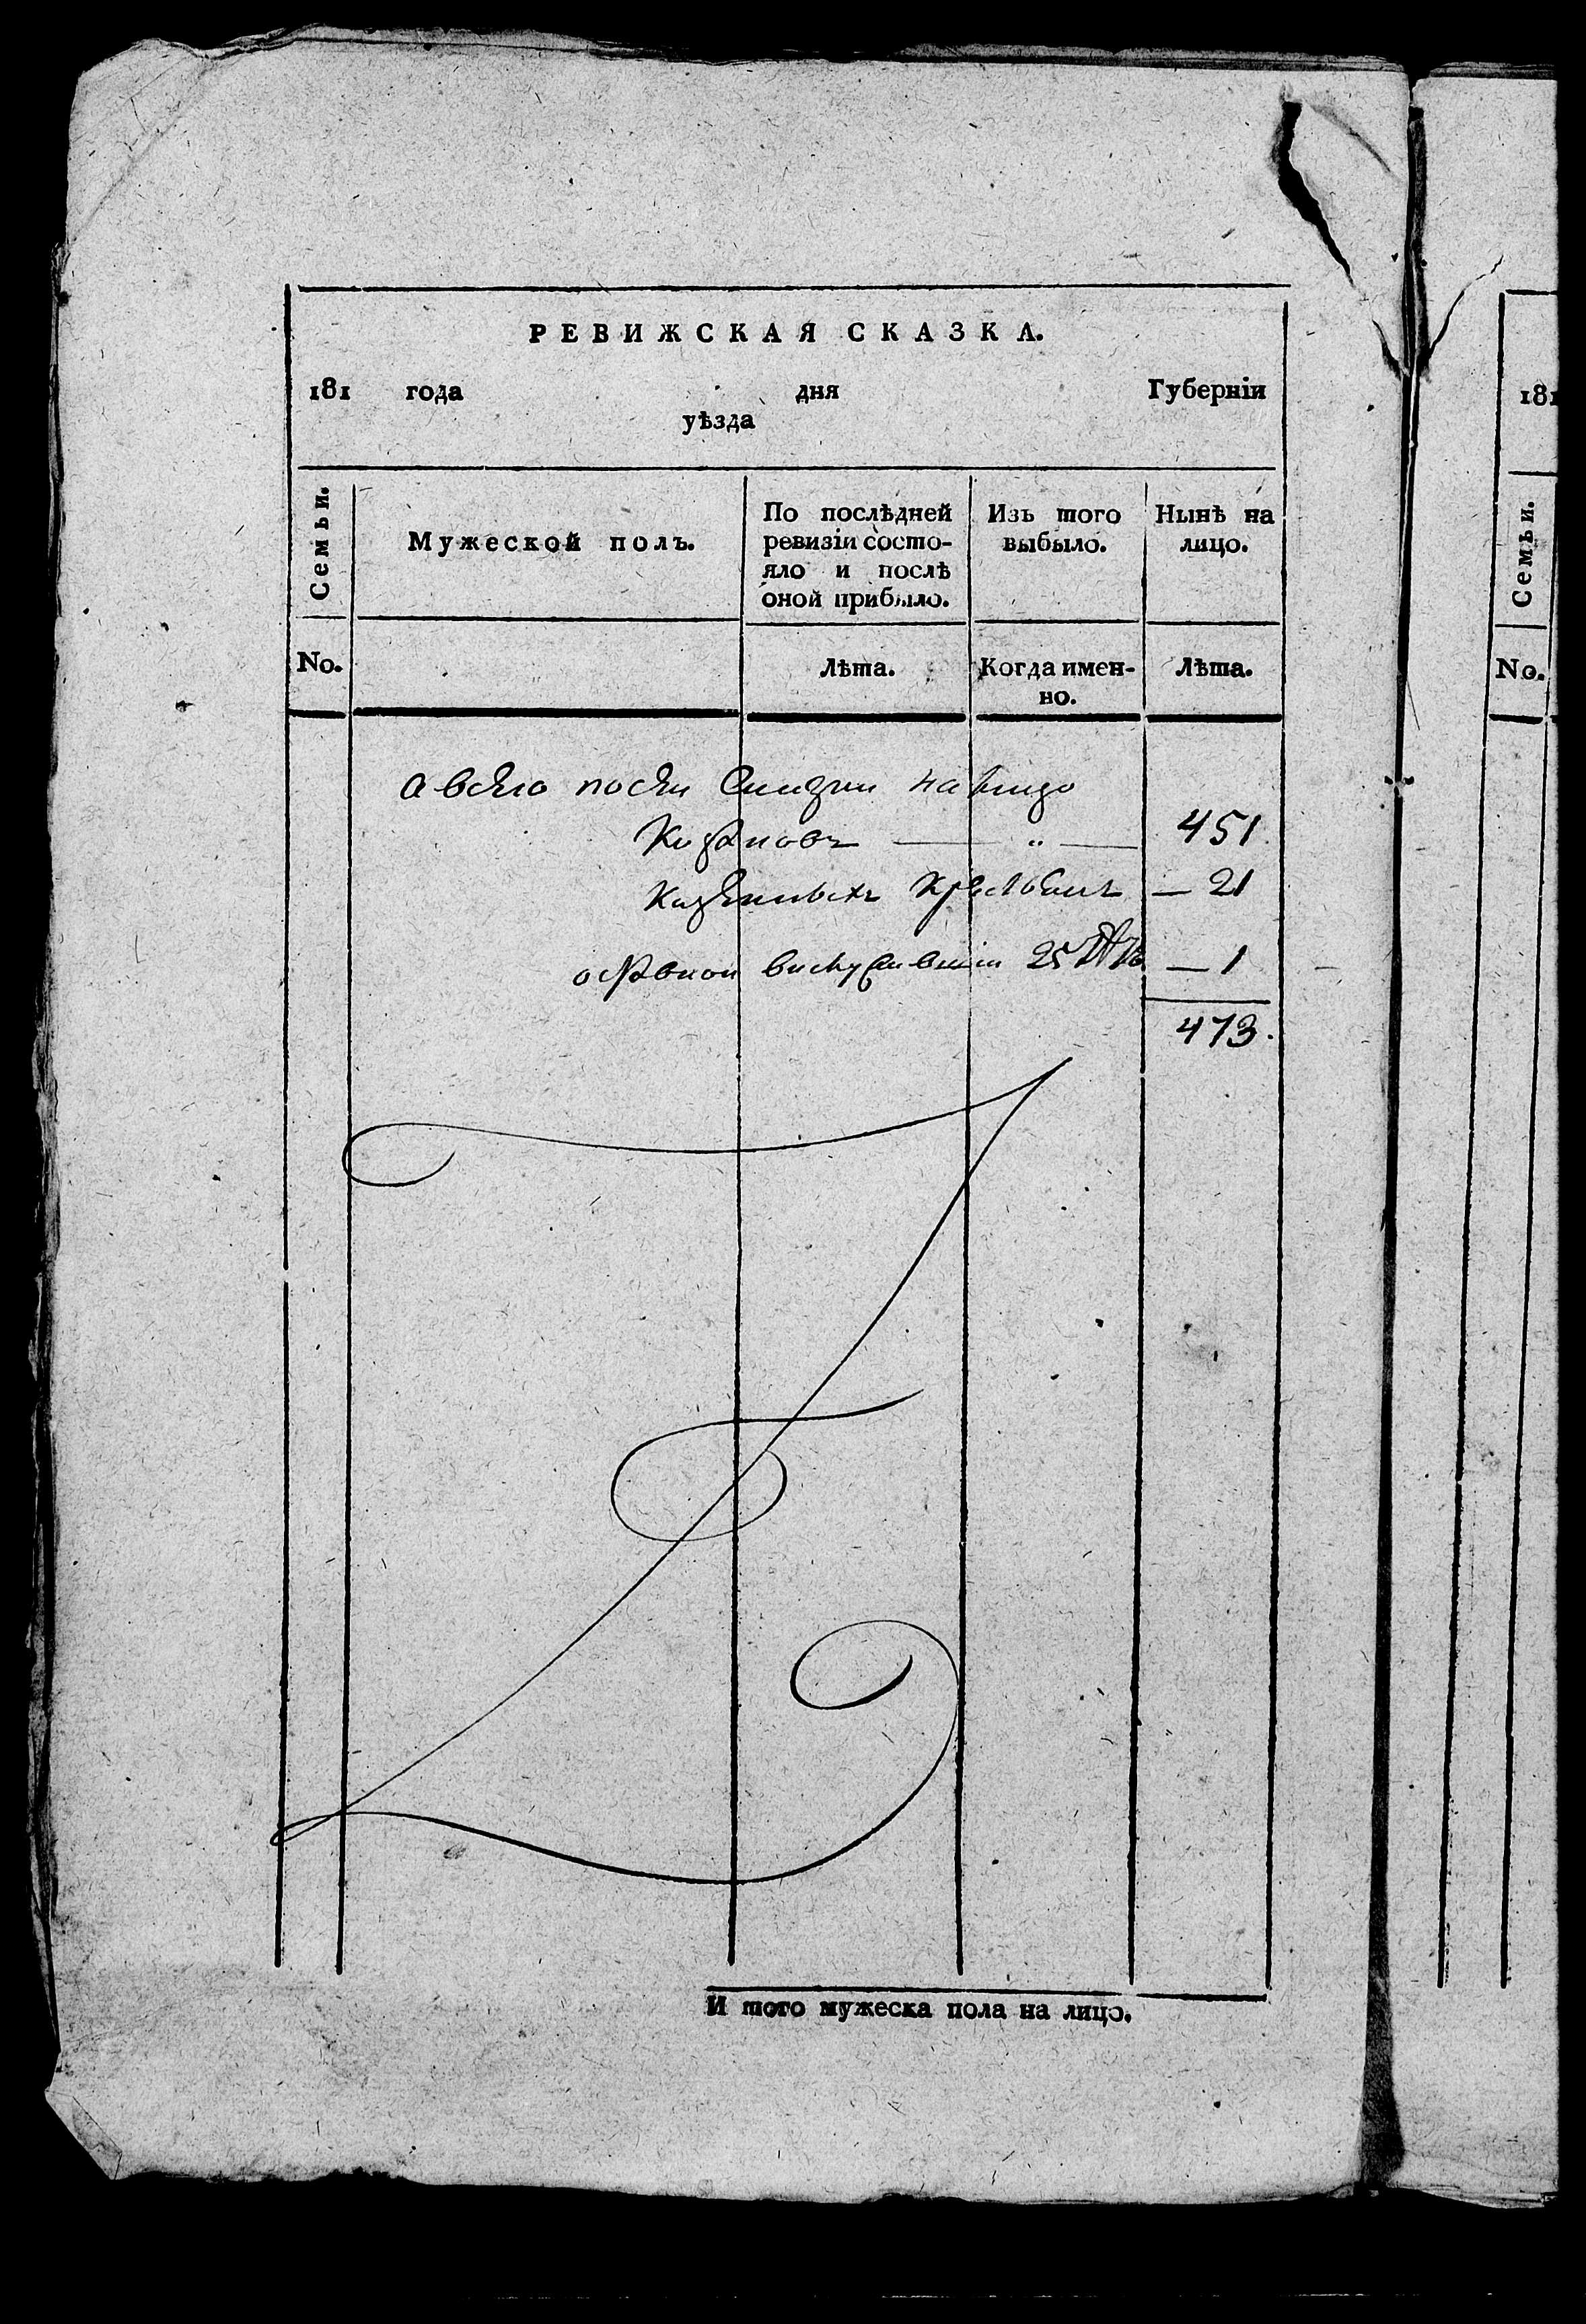 РЕВИЖСКАЯ СКАЗКА.
181 года дня Губерніи
уѣзда
Семьи.
Мужеской полъ.
По послѣдней ревизіи состо-
яло и послѣ
оной прибыло.
Изъ того
выбыло.
Нынѣ на
лицо.
No.
Лѣта.
Когда имен-
но.
Лѣта.
а всего по сей на лицо
451
казенныхъ крестьянъ — 21
25 — 1
473.
И того мужеска пола на лицо.
181
Семьи.
No.